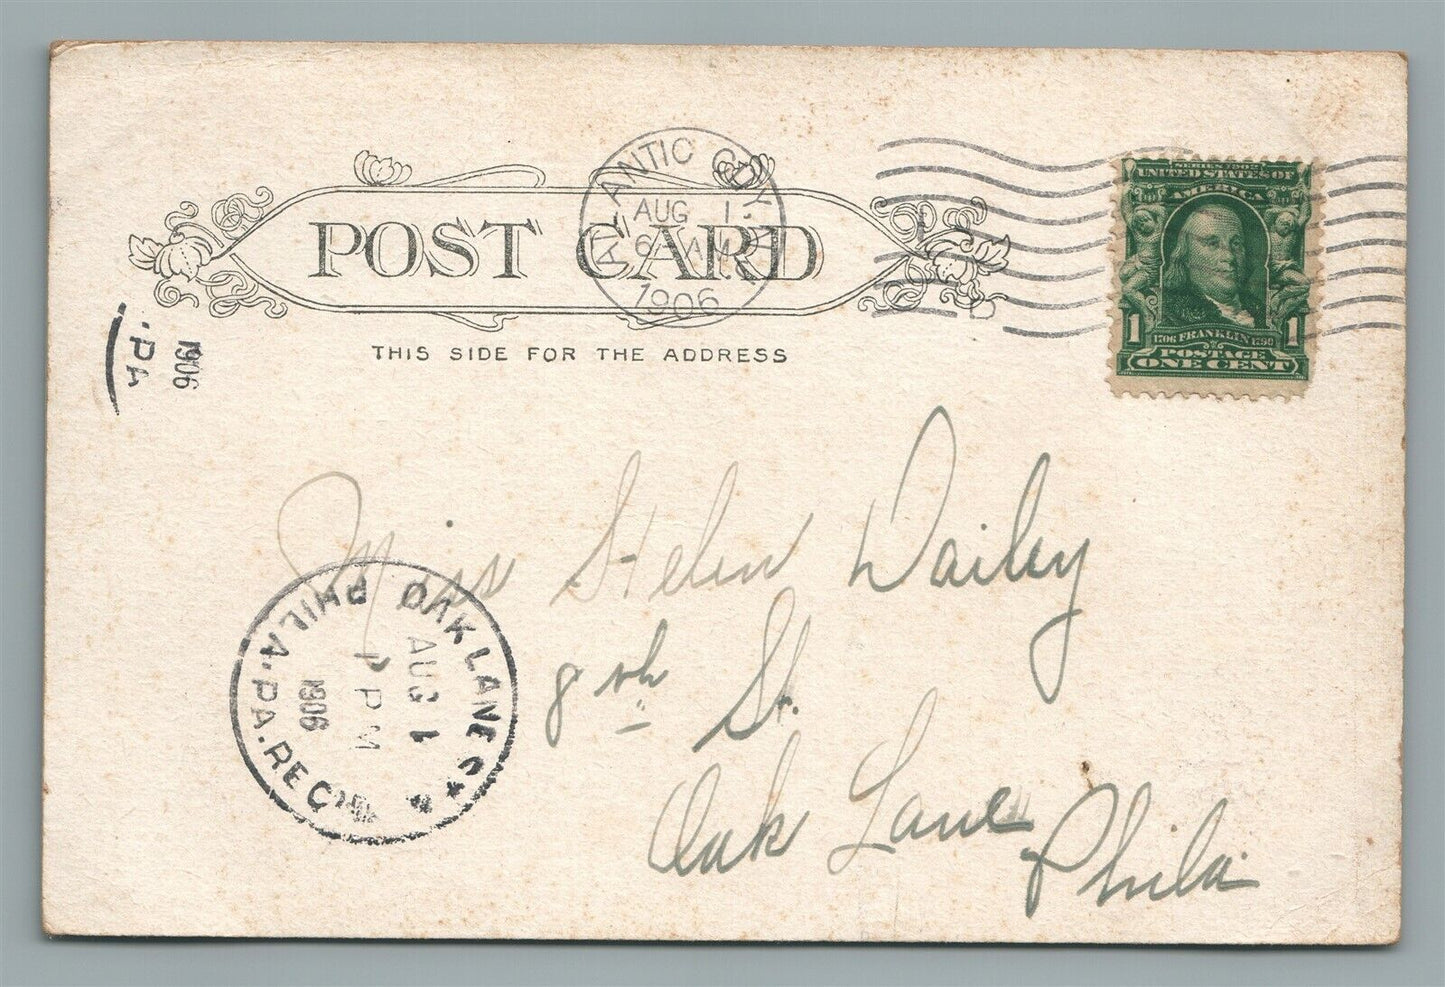 POST CARD
THIS SIDE FOR THE ADDRESS
ATLANTIC CITY, N.J.
AUG 1
6 AM
1906
D
SERIES 1902
UNITED STATES OF
AMERICA
1 1
1706 FRANKLIN 1790
POSTAGE
ONE CENT
.PA
1906
Miss Helen Dailey
8th St.
Oak Lane
Phila
OAK LANE
PHILA. PA. REC'D
AUG 1
PM
1906